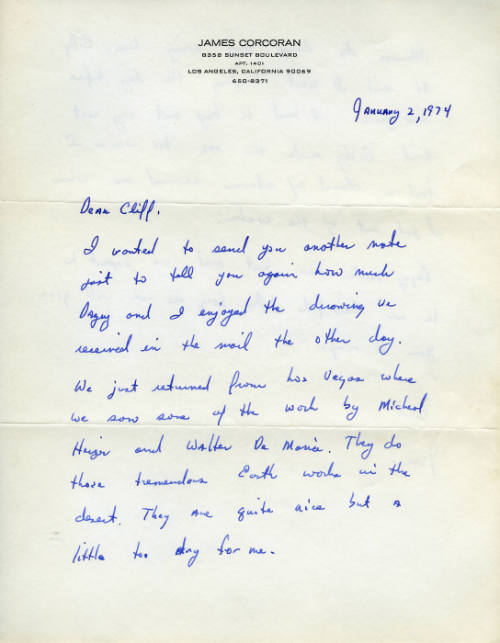 JAMES CORCORAN
8358 SUNSET BOULEVARD
APT. 1401
LOS ANGELES, CALIFORNIA 90069
650-8371
January 2, 1974
Dear Cliff,
I wanted to send you another note
just to tell you again how much
and I enjoyed the drawing we
received in the mail the other day.
We just returned from Las Vegas where
we saw some of the work by Micheal
Heizer and Walter De Maria. They do
those tremendous Earth works in the
desert. They are quite nice but a
little too dry for me.